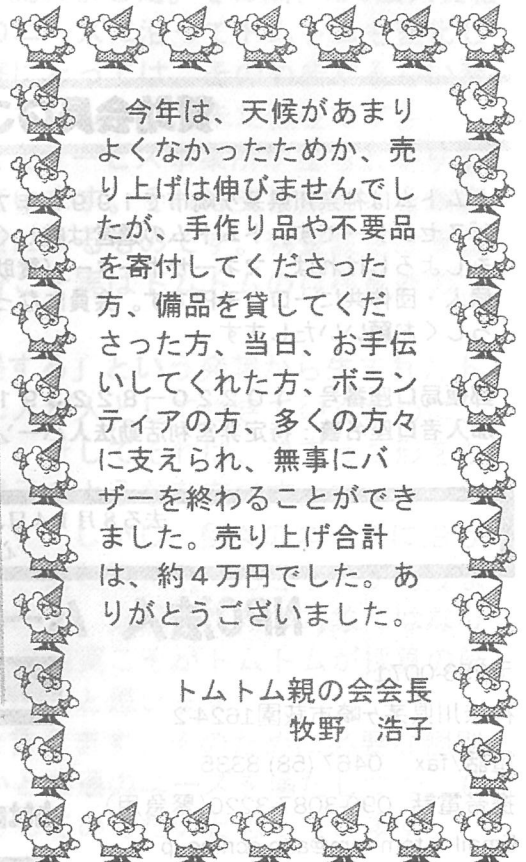 今年は、天候があまり
よくなかったためか、売
り上げは伸びませんでし
たが、手作り品や不要品
を寄付してくださった
方、備品を貸してくだ
さった方、当日、お手伝
いしてくれた方、ボラン
ティアの方、多くの方々
に支えられ、無事にバ
ザーを終わることができ
ました。売り上げ合計
は、約４万円でした。あ
りがとうございました。
トムトム親の会会長
牧野　浩子